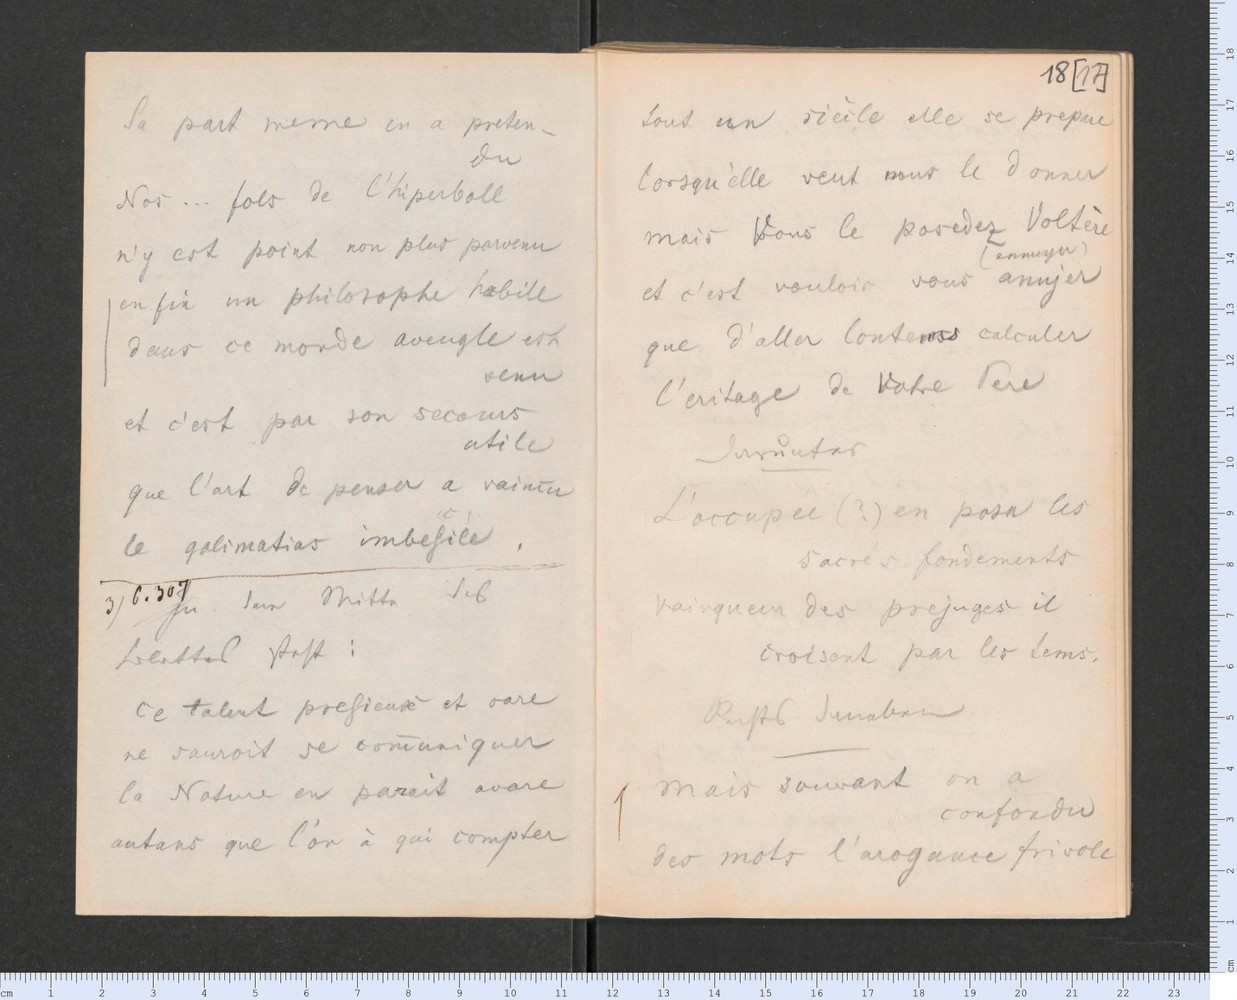 Sa part meme en a preten-
du
Nos ... fols de l'hiperboll
n'y est point non plus parvenu
enfin un philosophe habile
dans ce monde aveugle est
venu
et c'est par son secours
utile
que l'art de penser a vaincu
le galimatias imbesile,
(c)
3) C. 307
In der Mitte des
Blattes steht:
Ce talent presieux et rare
ne sauroit se comuniquer
la Nature en parait avare
autans que l'on à qui compter
18 [17]
tout un siècle elle se prepare
lorsqu'elle veut nous le donner
mais Vous le posedez Voltère
(ennuyer)
et c'est vouloir vous anujer
que d'aller lontems calculer
l'eritage de Votre Pere
Darunter
L'occupée (?) en posa les
sacrés fondements
vainqueur des prejuges il
croisent par les tems.
Rechts daneben
mais souvant on a
confondu
des mots l'arogance frivole